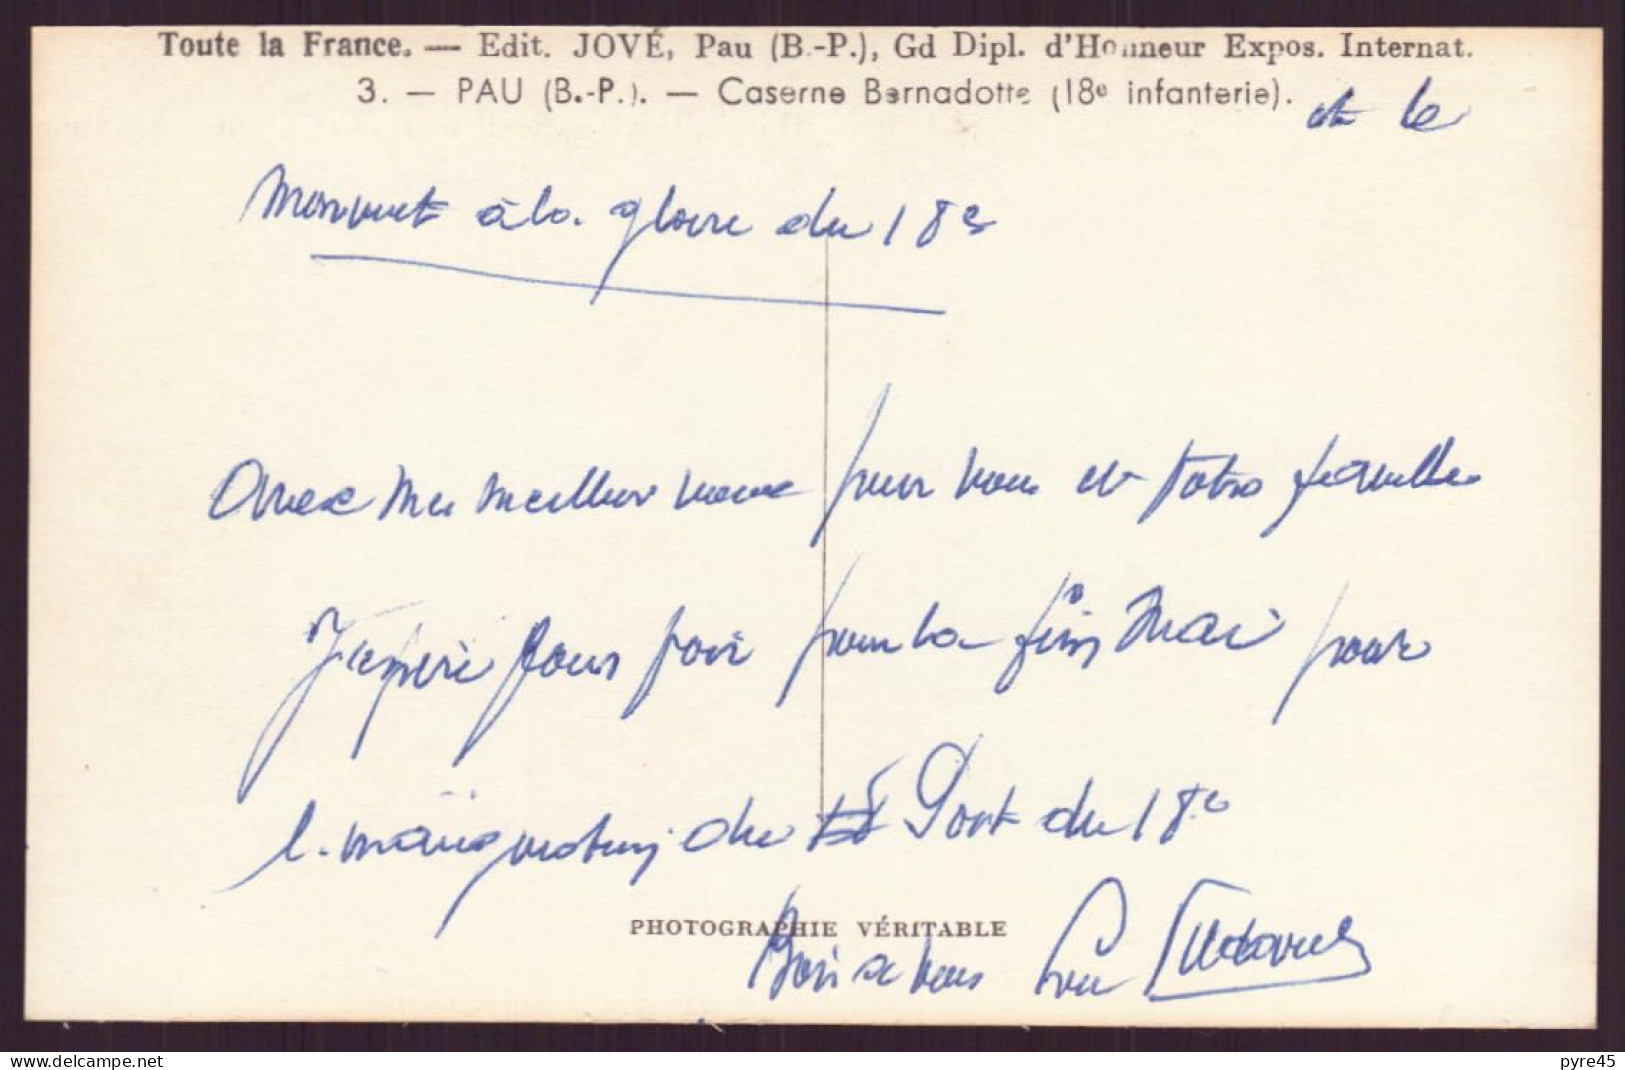 Toute la France. — Edit. JOVÉ, Pau (B.-P.), Gd Dipl. d'Honneur Expos. Internat.
3. — PAU (B.-P.). — Caserne Bernadotte (18e infanterie). et le
Monument à la gloire du 18e
Avec mes meilleurs vœux pour vous et votre famille
J'espère vous voir pour la fin Mai pour
l'inauguration du Pont du 18e
PHOTOGRAPHIE VÉRITABLE
Bien à vous
pyre45
delcampe.net